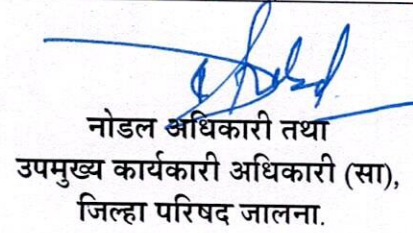 नोडल अधिकारी तथा
उपमुख्य कार्यकारी अधिकारी (सा),
जिल्हा परिषद जालना.